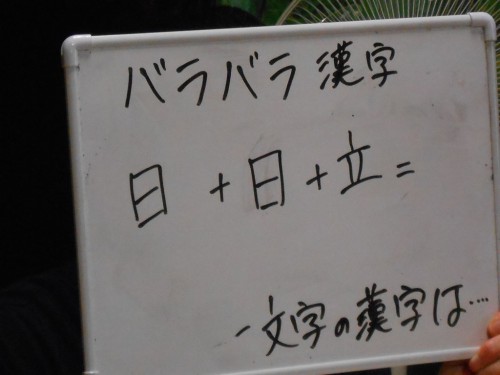 バラバラ漢字
日+日+立=
一文字の漢字は…